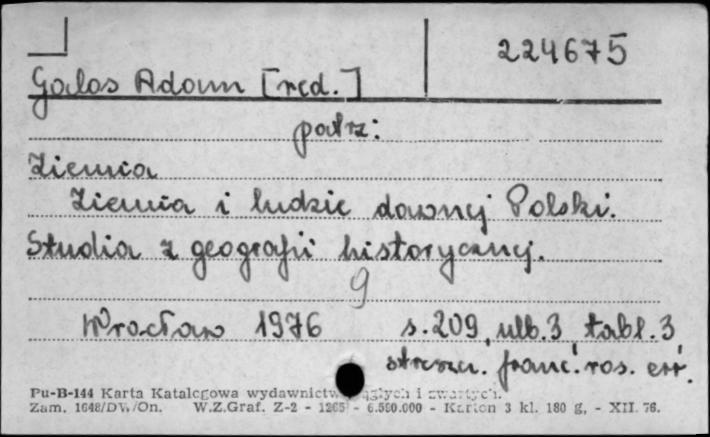 224675
Galos Adam [red.]
patrz:
Ziemia
Ziemia i ludzie dawnej Polski.
Studia z geografii historycznej.
9
Wrocław 1976 s. 209, ulb. 3, tabl. 3
streszcz. franc. ros. err.
Pu-B-144 Karta Katalogowa wydawnictw ciągłych i zwartych.
Zam. 1648/DW/On. W.Z.Graf. Z-2 - 1265 - 6.500.000 - Karton 3 kl. 180 g, - XII. 76.